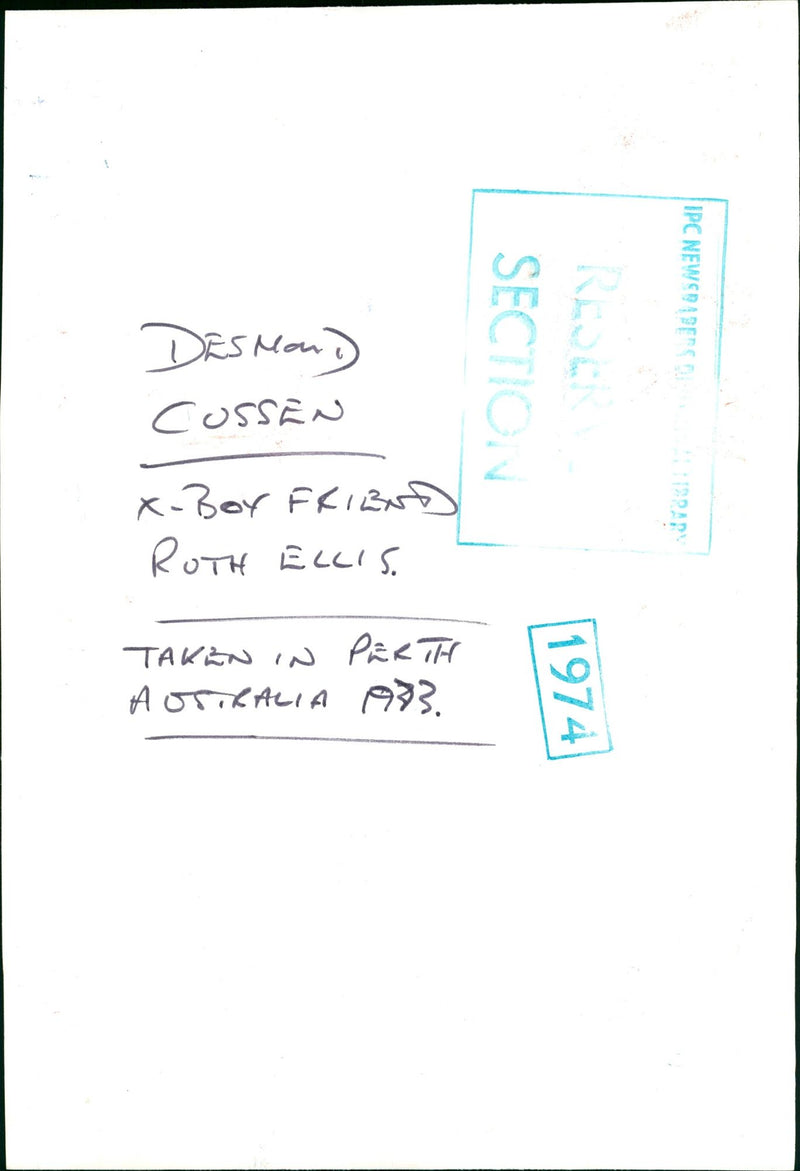 DESMOND
CUSSEN
X-BOY FRIEND
RUTH ELLIS.
TAKEN IN PERTH
AUSTRALIA 1973.
IPC NEWSPAPERS LIBRARY
SECTION
1974